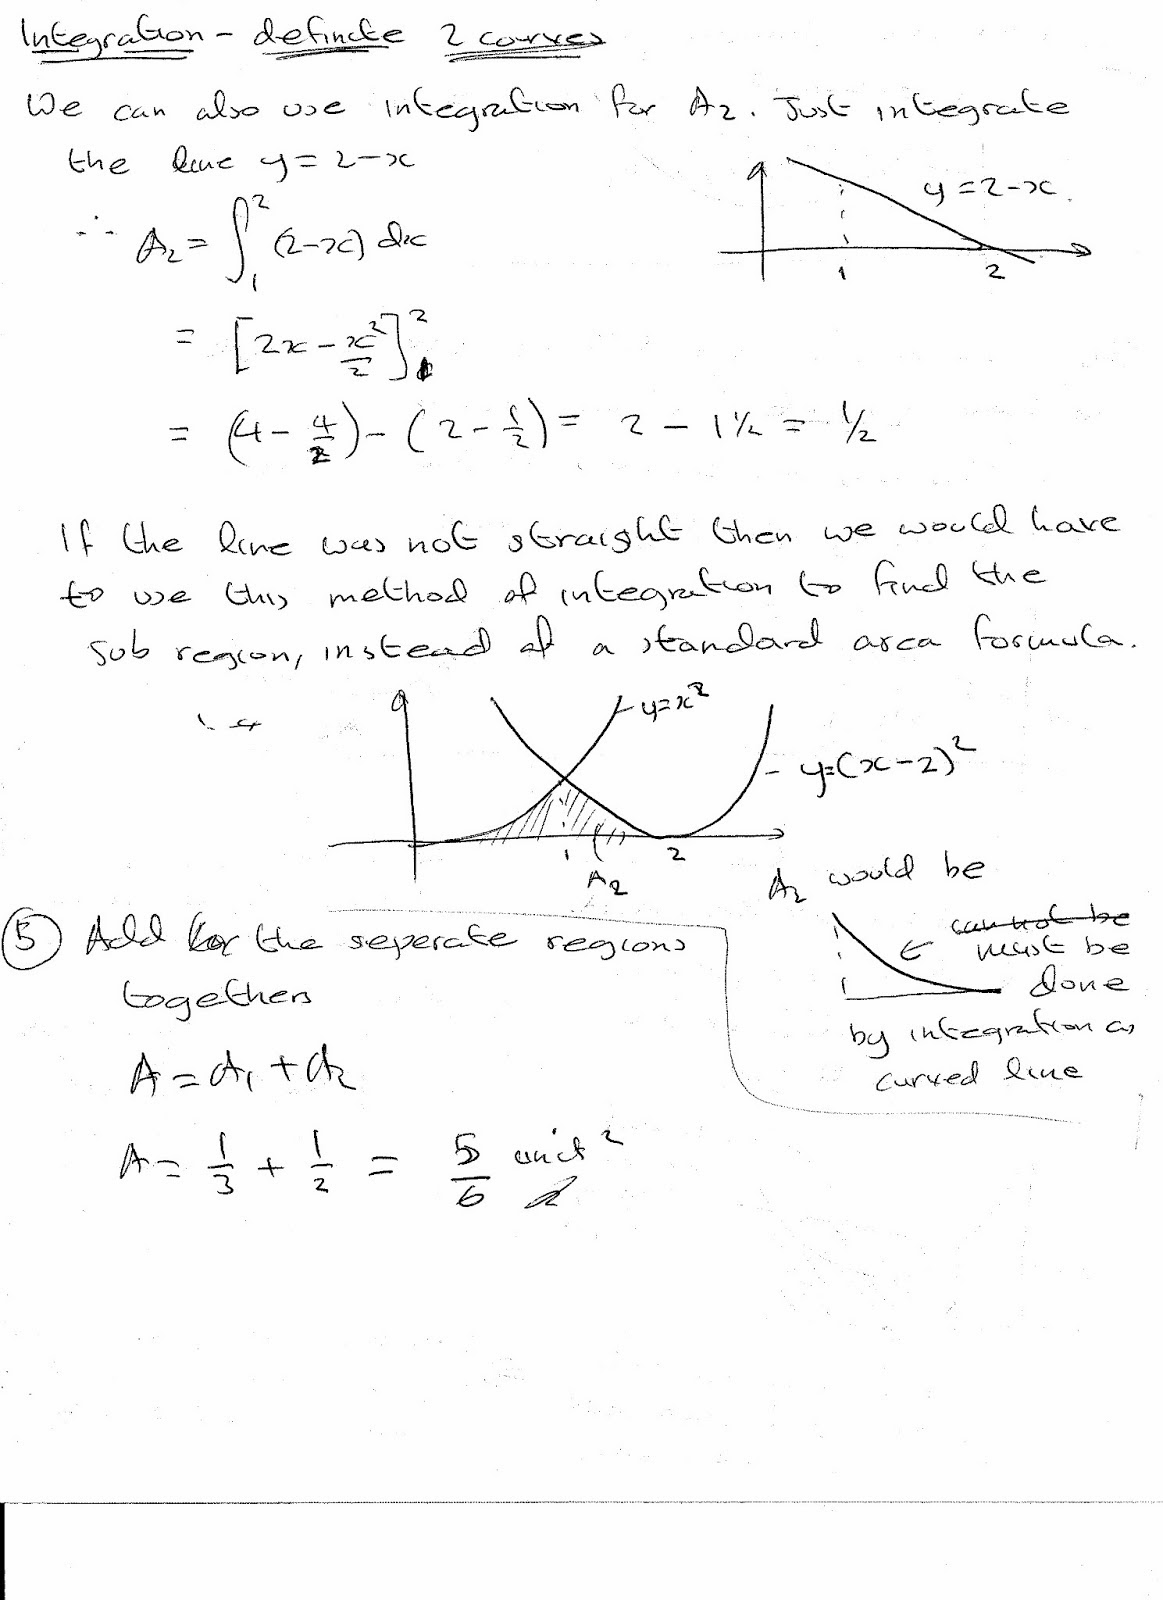 Integration - definite 2 curves
We can also use integration for A₂. Just integrate
the line y = 2-x
y = 2-x.
1 2
∴ A₂ = ∫₁² (2-x) dx
= [2x - x²/2]₁²
= (4 - 4/2) - (2 - 1/2) = 2 - 1½ = ½
If the line was not straight then we would have
to use this method of integration to find the
sub region, instead of a standard area formula.
y=x²
y=(x-2)²
1 2
A₂
A₂ would be
can not be
must be
done
1
by integration as
curved line
⑤ Add for the seperate regions
togethers
A = A₁ + A₂
A = 1/3 + 1/2 = 5/6 unit²